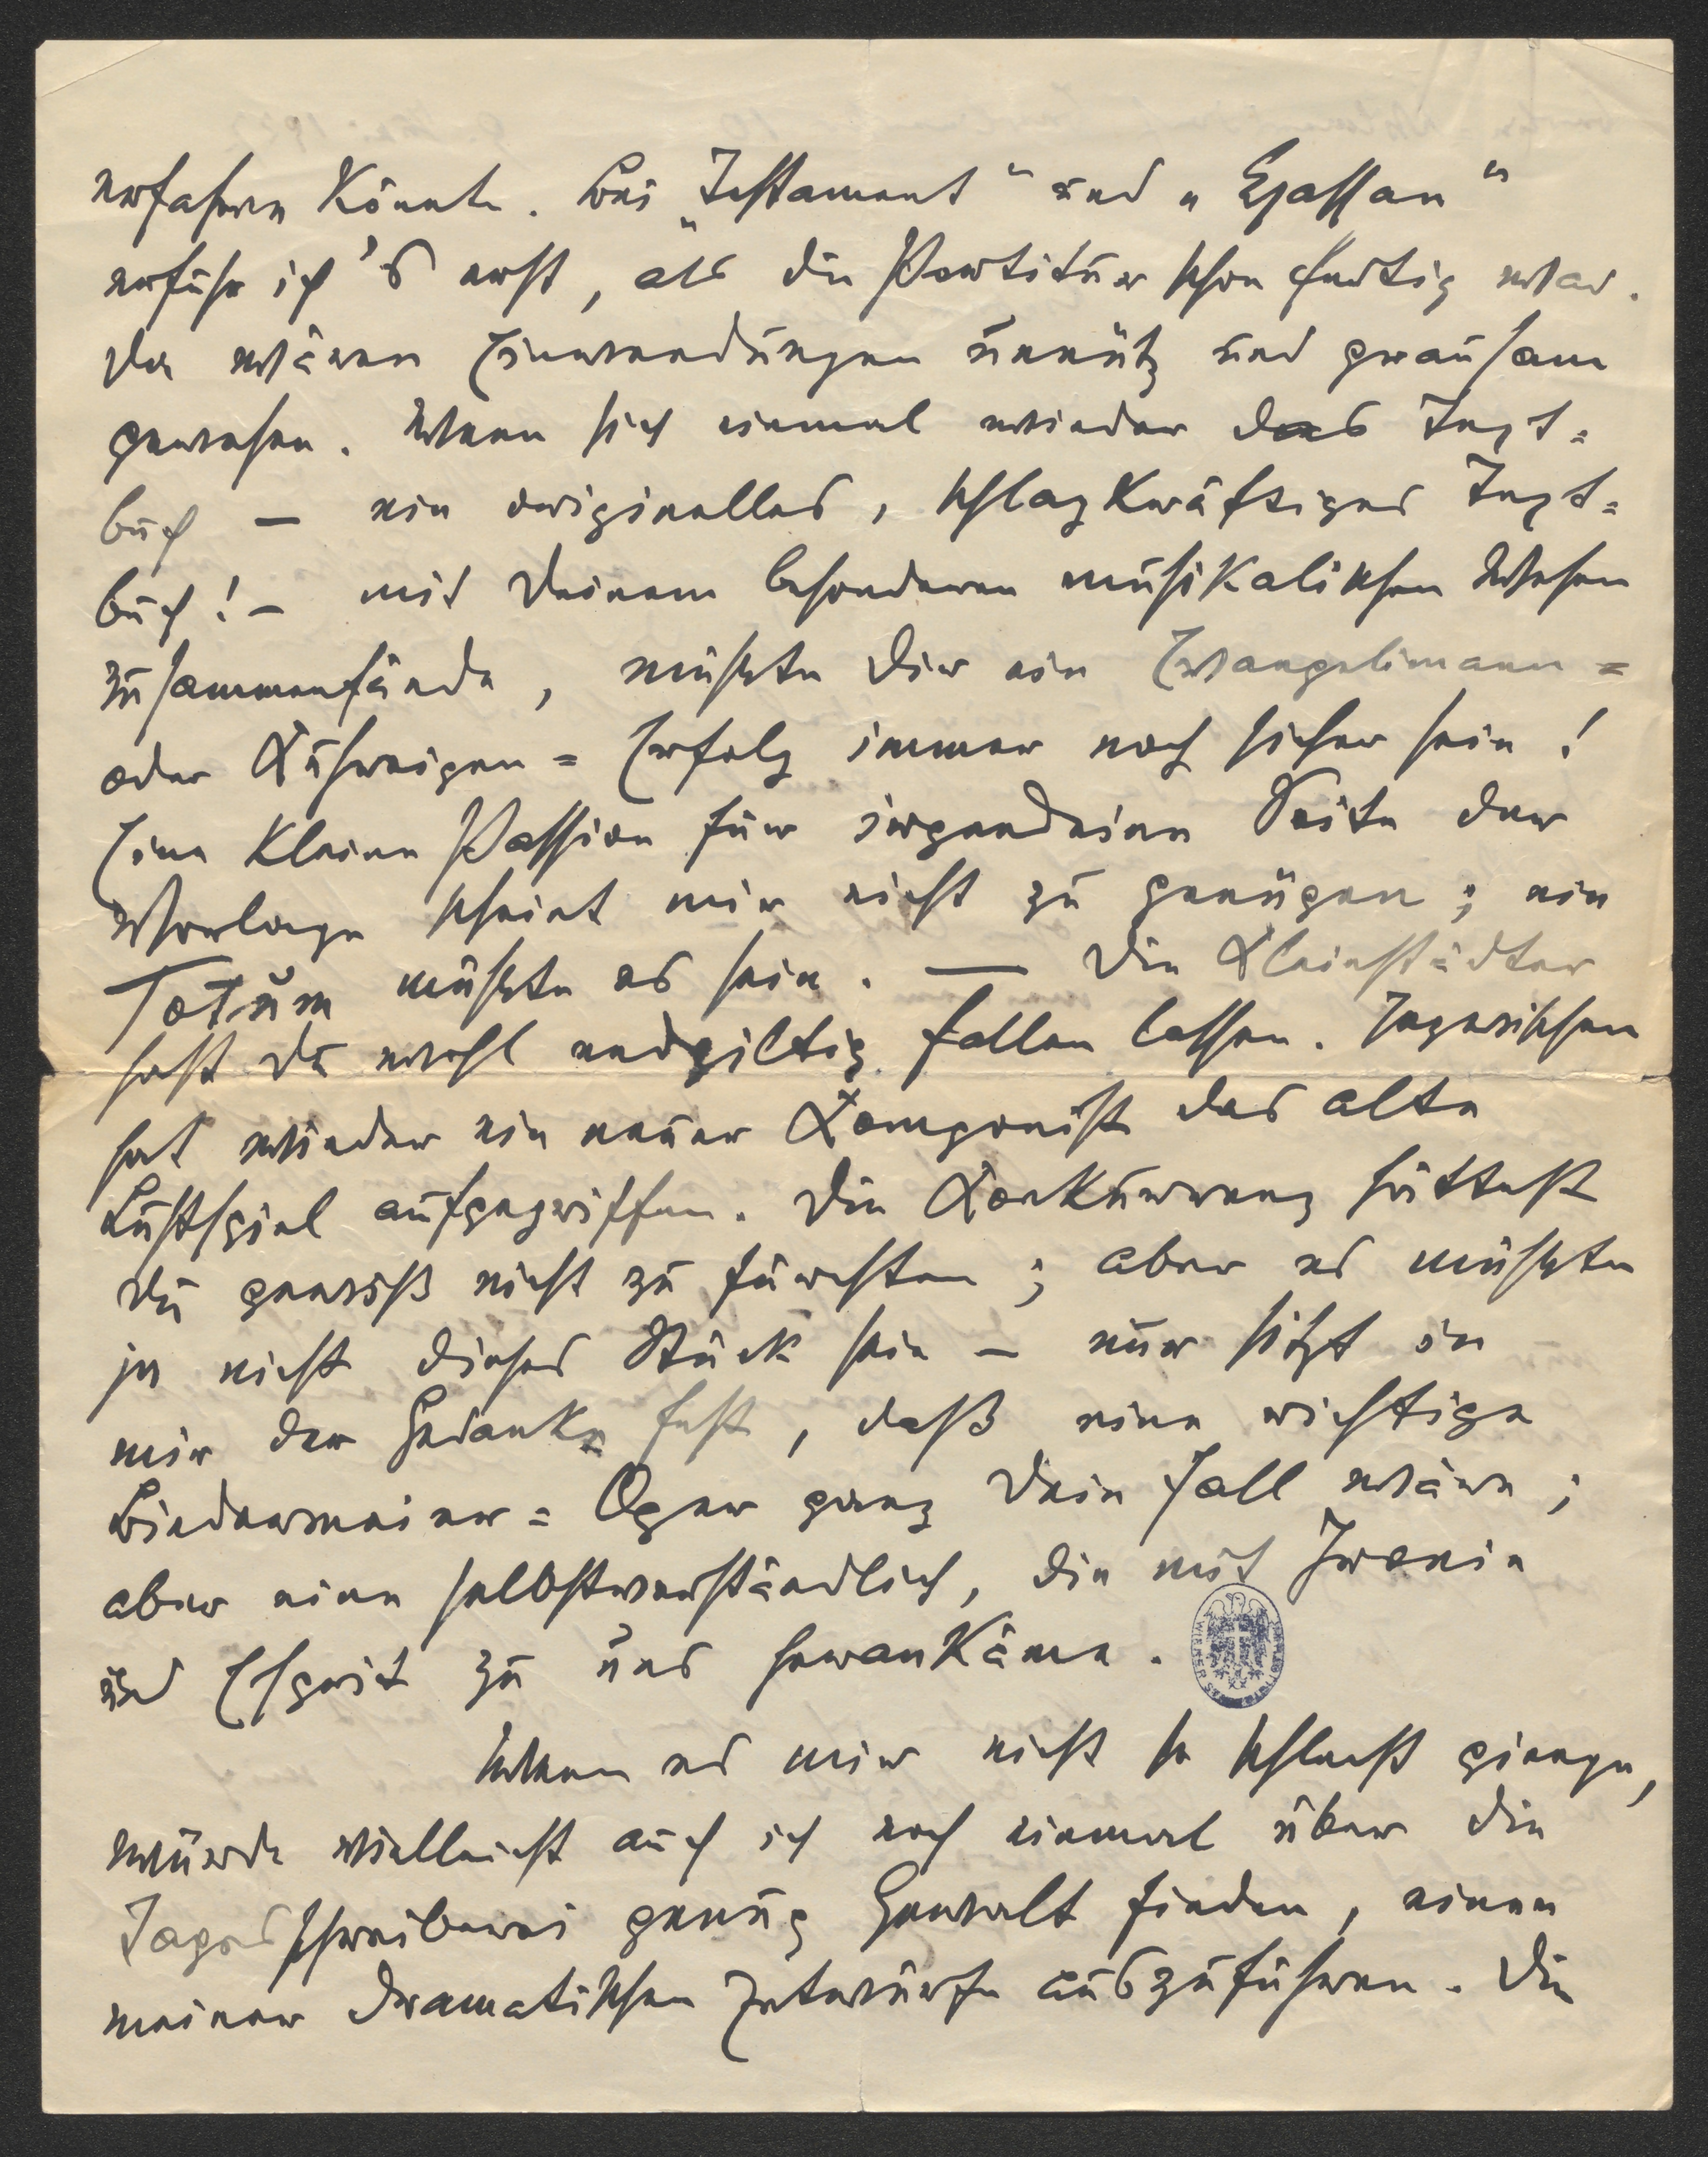 erfahren könnte. Bei „Testament“ und „Hassan“
erfuhr ich's erst, als die Partitur schon fertig war.
Da wären Einwendungen unnütz und grausam
gewesen. Wenn sich einmal wieder das Text=
buch — ein originelles, schlagkräftiges Text=
buch! — mit Deinem besonderen musikalischen Wesen
zusammenfände, müßte Dir ein Evangelimann=
oder Kuhreigen=Erfolg immer noch sicher sein!
Eine kleine Passion für irgendeine Seite der
Vorlage scheint mir nicht zu genügen; ein
Totum müßte es sein. — Die Kleinstädter
hast Du wohl endgiltig fallen lassen. Inzwischen
hat wieder ein neuer Komponist das alte
Lustspiel aufgegriffen. Die Konkurrenz hättest
Du gewiß nicht zu fürchten; aber es müßte
ja nicht dieses Stück sein — nur sitzt in
mir der Gedanke fest, daß eine richtige
Biedermeier=Oper ganz Dein Fall wäre;
aber eine selbstverständlich, die mit Ironie
und Esprit zu uns herankäme.
Wenn es mir nicht so schlecht gienge,
würde vielleicht auch ich noch einmal über die
Tagesschreiberei genug Gewalt finden, einen
meiner dramatischen Entwürfe auszuführen. Die